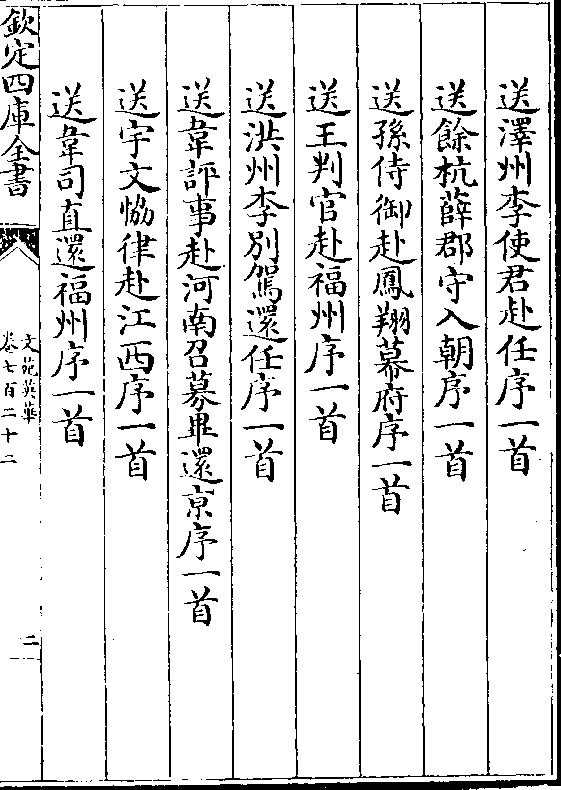 送澤州李使君赴任序一首
送餘杭薛郡守入朝序一首
送孫侍御赴鳳翔幕府序一首
送王判官赴福州序一首
送洪州李别駕還任序一首
送韋評事赴河南召募畢還京序一首
送宇文恊律赴江西序一首
送韋司直還福州序一首
欽定四庫全書
文苑英華
卷七百二十二
二